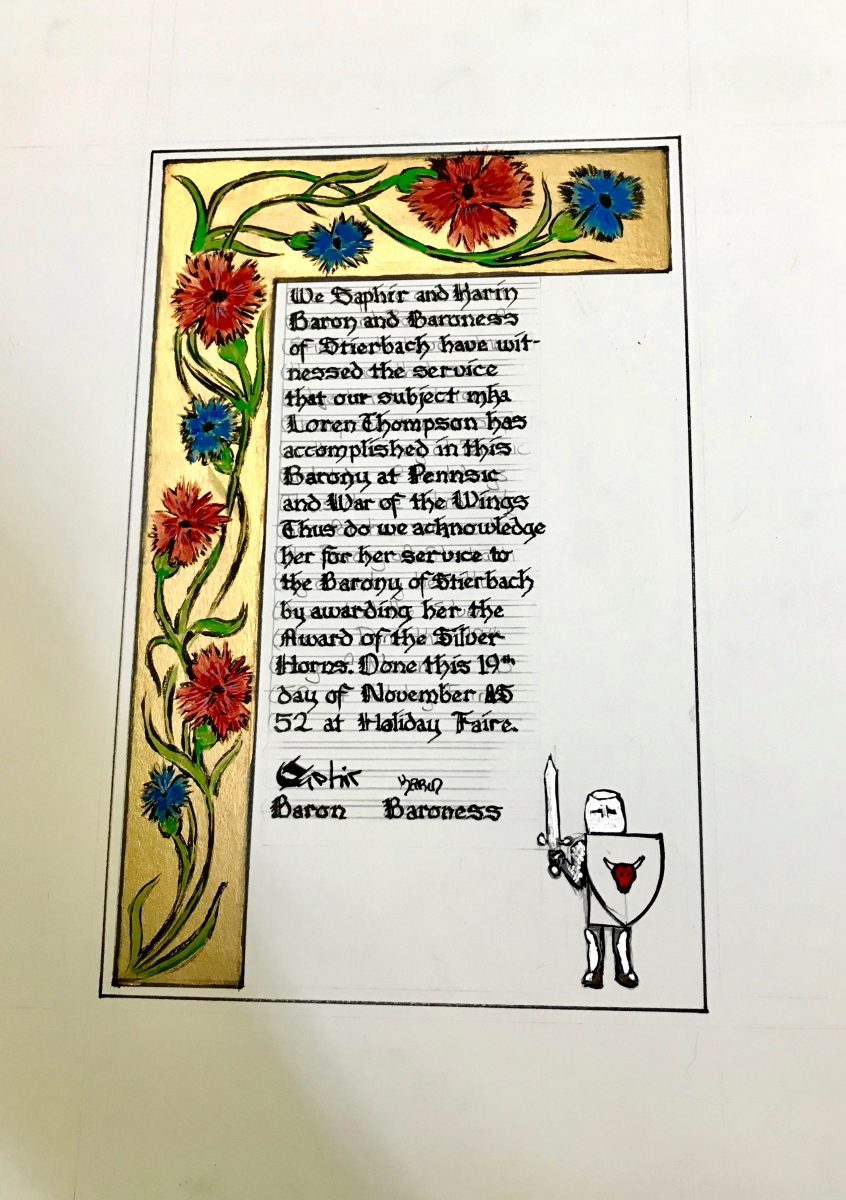 We Saphir and Karin
Baron and Baroness
of Stierbach have wit-
nessed the service
that our subject mka
Loren Thompson has
accomplished in this
Barony at Pennsic
and War of the Wings
Thus do we acknowledge
her for her service to
the Barony of Stierbach
by awarding her the
Award of the Silver
Horns. Done this 19th
day of November AS
52 at Holiday Faire.
Saphir Karin
Baron Baroness